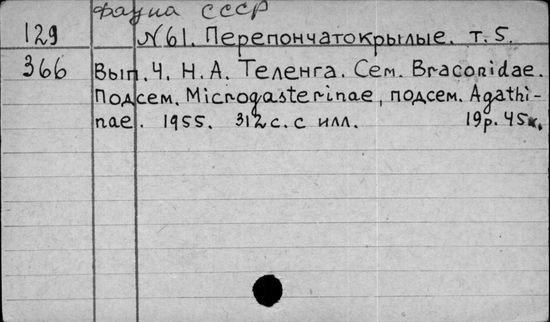 Фауна СССР
129 №61. Перепончатокрылые. т. 5.
366 Вып. 4. Н. А. Теленга. Сем. Braconidae.
Подсем. Microgasterinae, подсем. Agathi-
nae. 1955. 312 с. с илл. 19р. 45к.